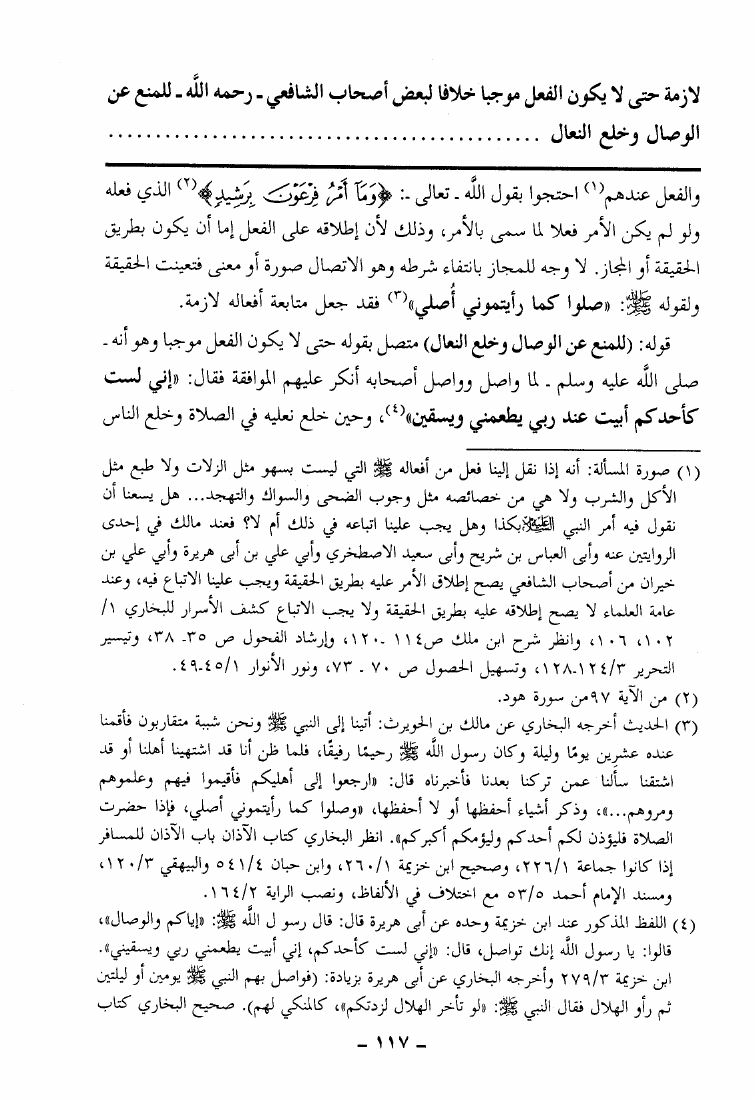 لازمة حتى لا يكون الفعل موجبا خلافا لبعض أصحاب الشافعي ـ رحمه اللَّه ـ للمنع عن
الوصال وخلع النعال ................................................
والفعل عندهم(١) احتجوا بقول اللَّه ـ تعالى ـ: ﴿وَمَآ أَمْرُ فِرْعَوْنَ بِرَشِيدٍ﴾(٢) الذي فعله
ولو لم يكن الأمر فعلا لما سمى بالأمر، وذلك لأن إطلاقه على الفعل إما أن يكون بطريق
الحقيقة أو المجاز. لا وجه للمجاز بانتفاء شرطه وهو الاتصال صورة أو معنى فتعينت الحقيقة
ولقوله ﷺ: «صلوا كما رأيتموني أُصلي»(٣) فقد جعل متابعة أفعاله لازمة.
قوله: (للمنع عن الوصال وخلع النعال) متصل بقوله حتى لا يكون الفعل موجبا وهو أنه ـ
صلى اللَّه عليه وسلم ـ لما واصل وواصل أصحابه أنكر عليهم الموافقة فقال: «إني لست
كأحدكم أبيت عند ربي يطعمني ويسقين»(٤)، وحين خلع نعليه في الصلاة وخلع الناس
(١) صورة المسألة: أنه إذا نقل إلينا فعل من أفعاله ﷺ التي ليست بسهو مثل الزلات ولا طبع مثل
الأكل والشرب ولا هي من خصائصه مثل وجوب الضحى والسواك والتهجد... هل يسعنا أن
نقول فيه أمر النبي بكذا وهل يجب علينا اتباعه في ذلك أم لا؟ فعند مالك في إحدى
الروايتين عنه وأبى العباس بن شريح وأبى سعيد الاصطخري وأبي علي بن أبى هريرة وأبي علي بن
خيران من أصحاب الشافعي يصح إطلاق الأمر عليه بطريق الحقيقة ويجب علينا الاتباع فيه، وعند
عامة العلماء لا يصح إطلاقه عليه بطريق الحقيقة ولا يجب الاتباع كشف الأسرار للبخاري ١/
١٠٢، ١٠٦، وانظر شرح ابن ملك ص١١٤ ـ١٢٠، وإرشاد الفحول ص ٣٥ـ ٣٨، وتيسير
التحرير ١٢٤/٣ـ١٢٨، وتسهيل الحصول ص ٧٠ ـ ٧٣، ونور الأنوار ٤٥/١ـ٤٩.
(٢) من الآية ٩٧من سورة هود.
(٣) الحديث أخرجه البخاري عن مالك بن الحويرث: أتينا إلى النبي ﷺ ونحن شببة متقاربون فأقمنا
عنده عشرين يومًا وليلة وكان رسول اللَّه ﷺ رحيمًا رفيقًا، فلما ظن أنا قد اشتهينا أهلنا أو قد
اشتقنا سألنا عمن تركنا بعدنا فأخبرناه قال: «ارجعوا إلى أهليكم فأقيموا فيهم وعلموهم
ومروهم...»، وذكر أشياء أحفظها أو لا أحفظها، «وصلوا كما رأيتموني أصلي، فإذا حضرت
الصلاة فليؤذن لكم أحدكم وليؤمكم أكبركم». انظر البخاري كتاب الآذان باب الآذان للمسافر
إذا كانوا جماعة ٢٢٦/١، وصحيح ابن خزيمة ٢٦٠/١، وابن حبان ٥٤١/٤ والبيهقي ١٢٠/٣،
ومسند الإمام أحمد ٥٣/٥ مع اختلاف في الألفاظ، ونصب الراية ١٦٤/٢.
(٤) اللفظ المذكور عند ابن خزيمة وحده عن أبى هريرة قال: قال رسو ل اللَّه ﷺ: «إياكم والوصال»،
قالوا: يا رسول اللَّه إنك تواصل، قال: «إني لست كأحدكم، إني أبيت يطعمني ربي ويسقيني».
ابن خزيمة ٢٧٩/٣ وأخرجه البخاري عن أبى هريرة بزيادة: (فواصل بهم النبي ﷺ يومين أو ليلتين
ثم رأو الهلال فقال النبي ﷺ: «لو تأخر الهلال لزدتكم»، كالمنكي لهم). صحيح البخاري كتاب
ـ ١١٧ ـ